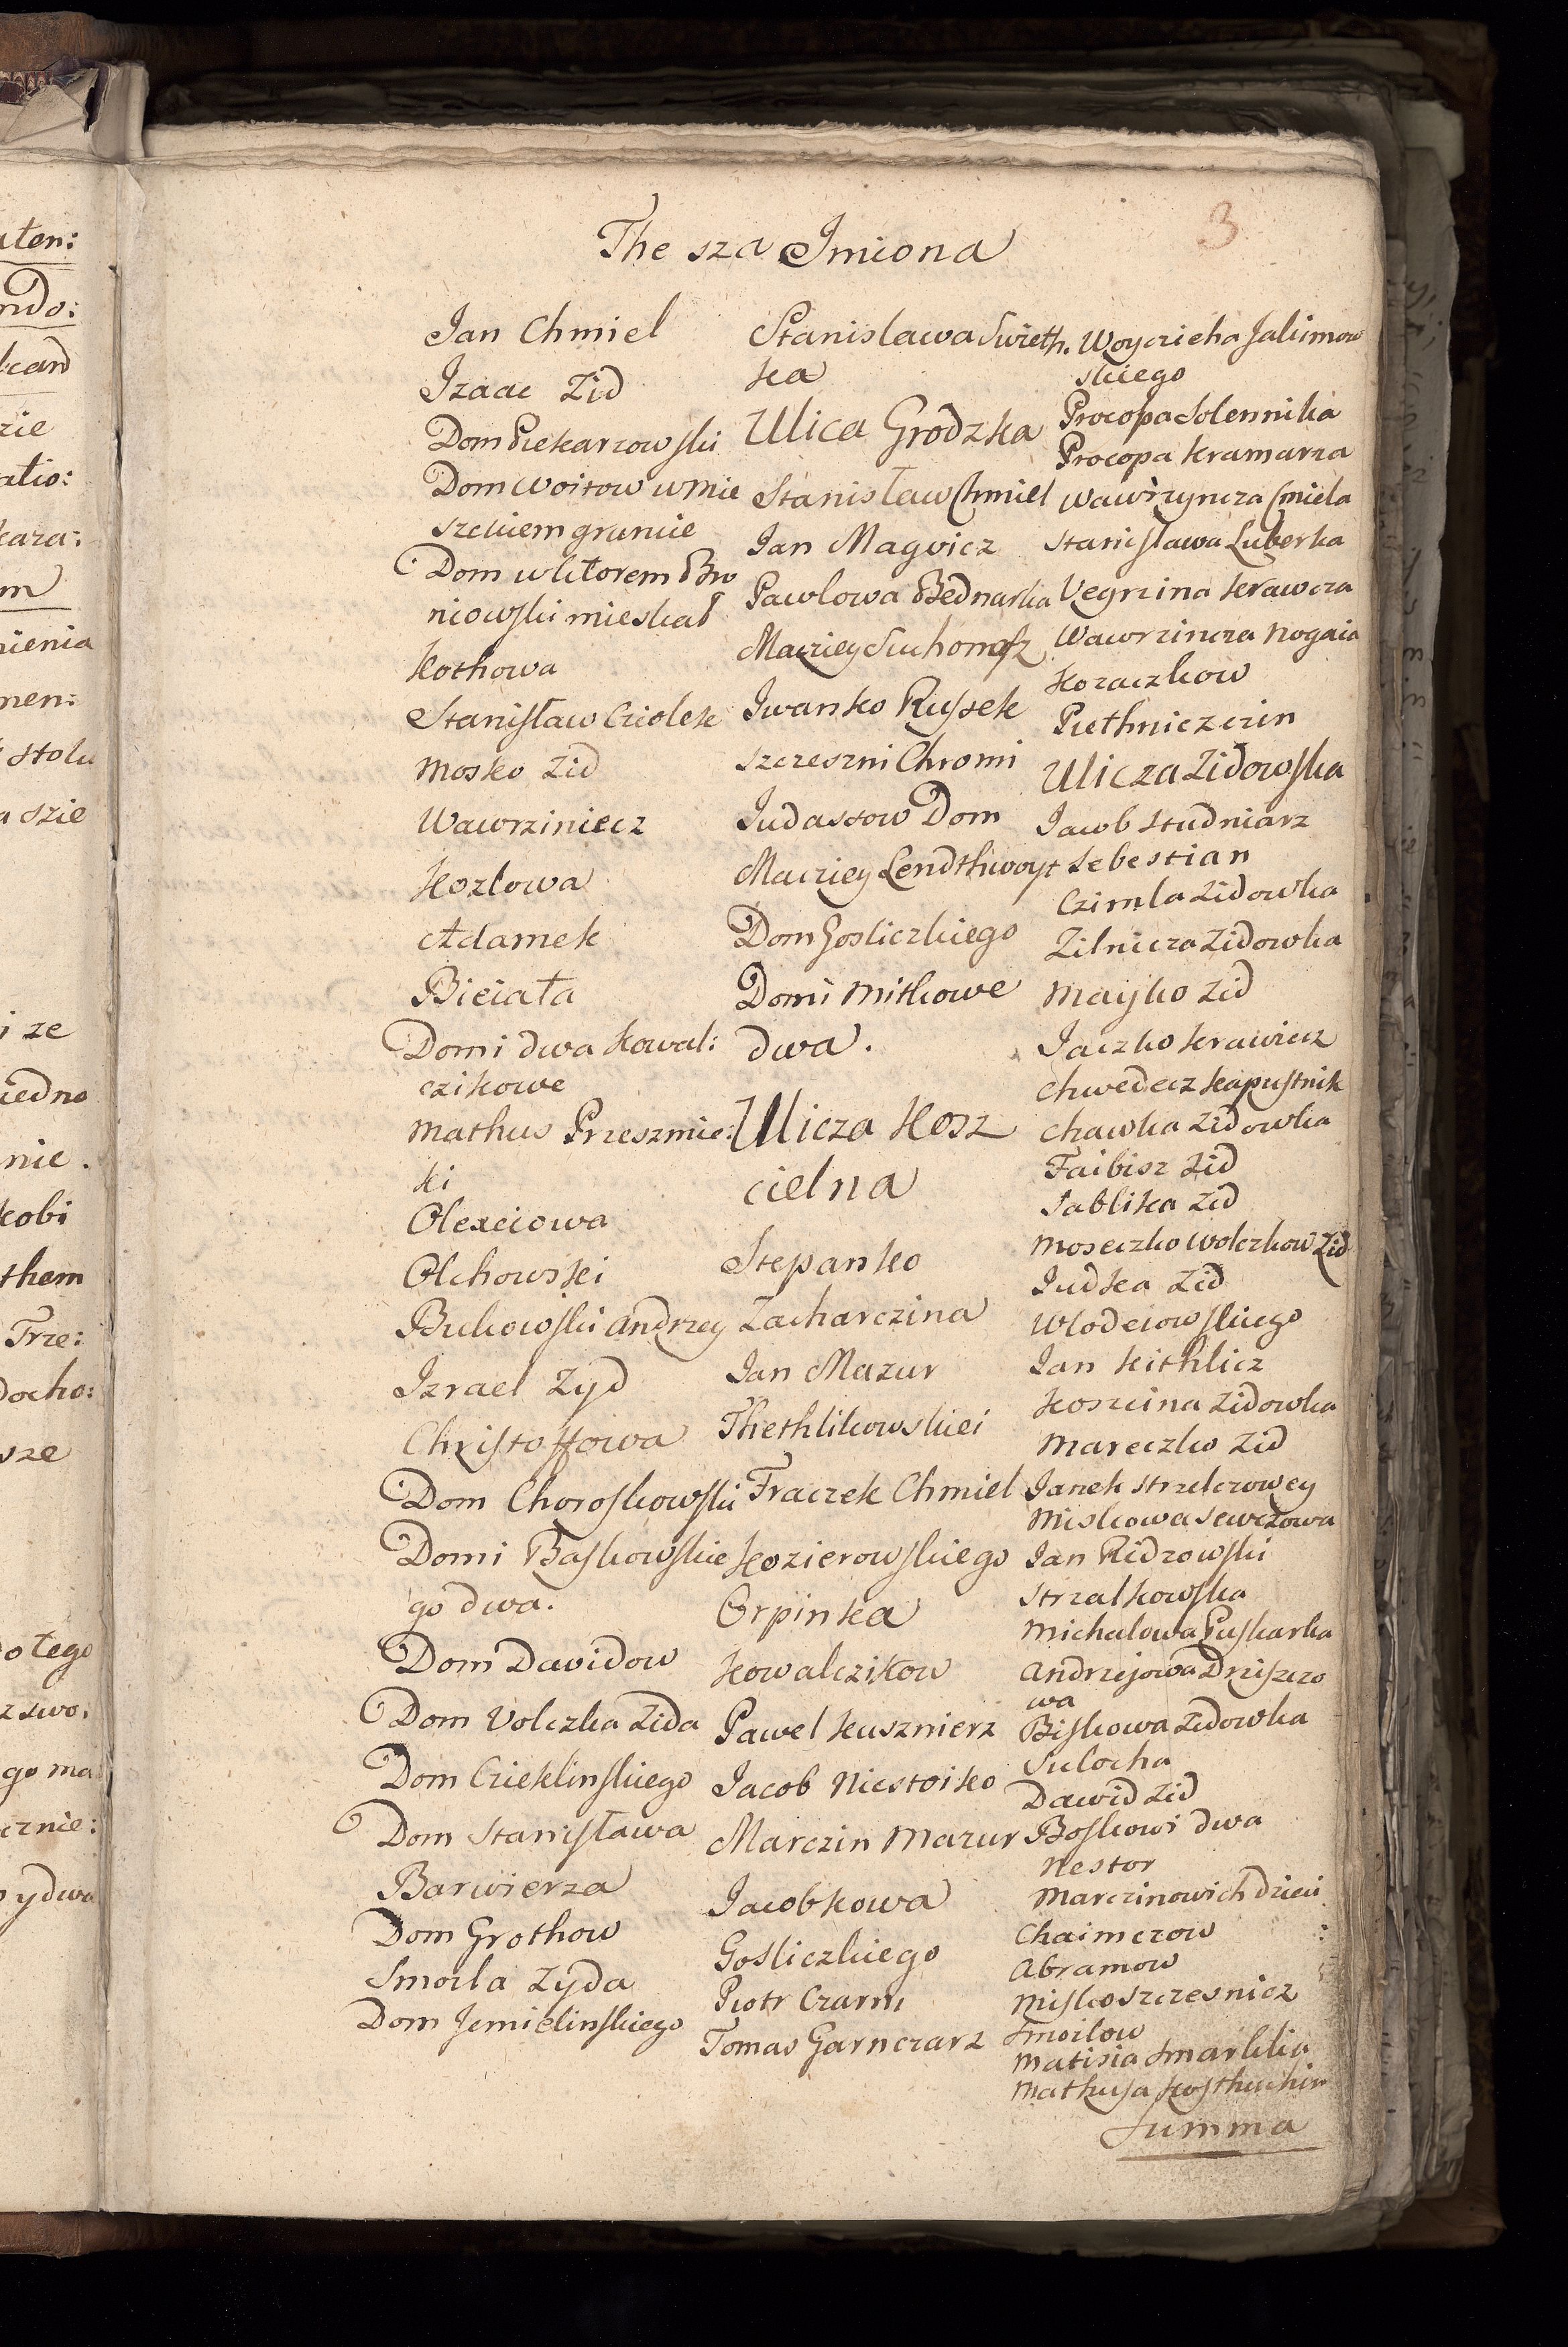 3
The sza Imiona
Jan Chmiel
Izaac Zid
Dom Piekarzowski
Dom Woitow w mie
szckiem gruncie
Dom w ktorem Bro
niowski mieskał
Kothowa
Stanisław Cziolek
Mosko Zid
Wawrziniecz
Kozlowa
Adamek
Bieiała
Domi dwa Kowal:
czikowe
Mathus Przeszmic:
ki
Olexeiowa
Olchowski
Bukowski Andrzey
Izrael Zyd
Christoffowa
Dom Choroskowski
Domi Baskowskie
go dwa.
Dom Davidow
Dom Volczka Zida
Dom Cieklinskiego
Dom Stanisława
Barwierza
Dom Grothow
Smoila Zyda
Dom Jemielinskiego
Stanislawa Swieth.
ka
Ulica Grodzka
Stanisław Chmiel
Jan Magvicz
Pawlowa Bednarka
Macziey
Iwanko Russek
Szczeszni Chromi
Judassow Dom
Macziey Lendthwoyt
Dom Gosliczkiego
Domi Mitkowe
dwa.
Ulicza Kosz
cielna
Stepanko
Zacharczina
Jan Mazur
Thethlikowskiei
Fraczek Chmiel
Kozierowskiego
Orpinka
Kowalczikow
Pawel Kusznierz
Jacob Niestoiko
Marczin Mazur
Jacobkowa
Gosliczkiego
Piotr Czarni
Tomas Garnczarz
Woyczieha Jakimow
skiego
Procopa Solennika
Procopa Kramarza
Wawrzyncza Cmiela
Stanislawa Luberka
Vegrzina Krawcza
Wawrzincza Nogaia
Kozaczkow
Piethniczczin
Ulicza Zidowska
Jacob Studniarz
Sebestian
Czimla Zidowka
Zilnicza Zidowka
Mayko Zid
Jaczko Krawiecz
Chwedecz Kapustnik
Chawka Zidowka
Faibisz Zid
Sabliska Zid
Moseczko Wolczkow Zid
Judka Zid
Wlodeiowskiego
Jan Kithlicz
Koszcina Zidowka
Mareczko Zid
Janek Strzelczowey
Miskowa Sewczowa
Jan Ridzowski
Strzalkowska
Michalowa Puskarka
Andrzejowa Dziszczo
wa
Biskowa Zidowka
Sulocha
Dawid Zid
Boskowi dwa
Nestor
Marczinowich dzieci
Chaimczow
Abramow
Misko Szczesnicz
Smoilow
Matisia Smarklia
Mathysa
Summa